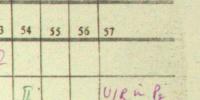 3 54 55 56 57
2
II U/R in P2